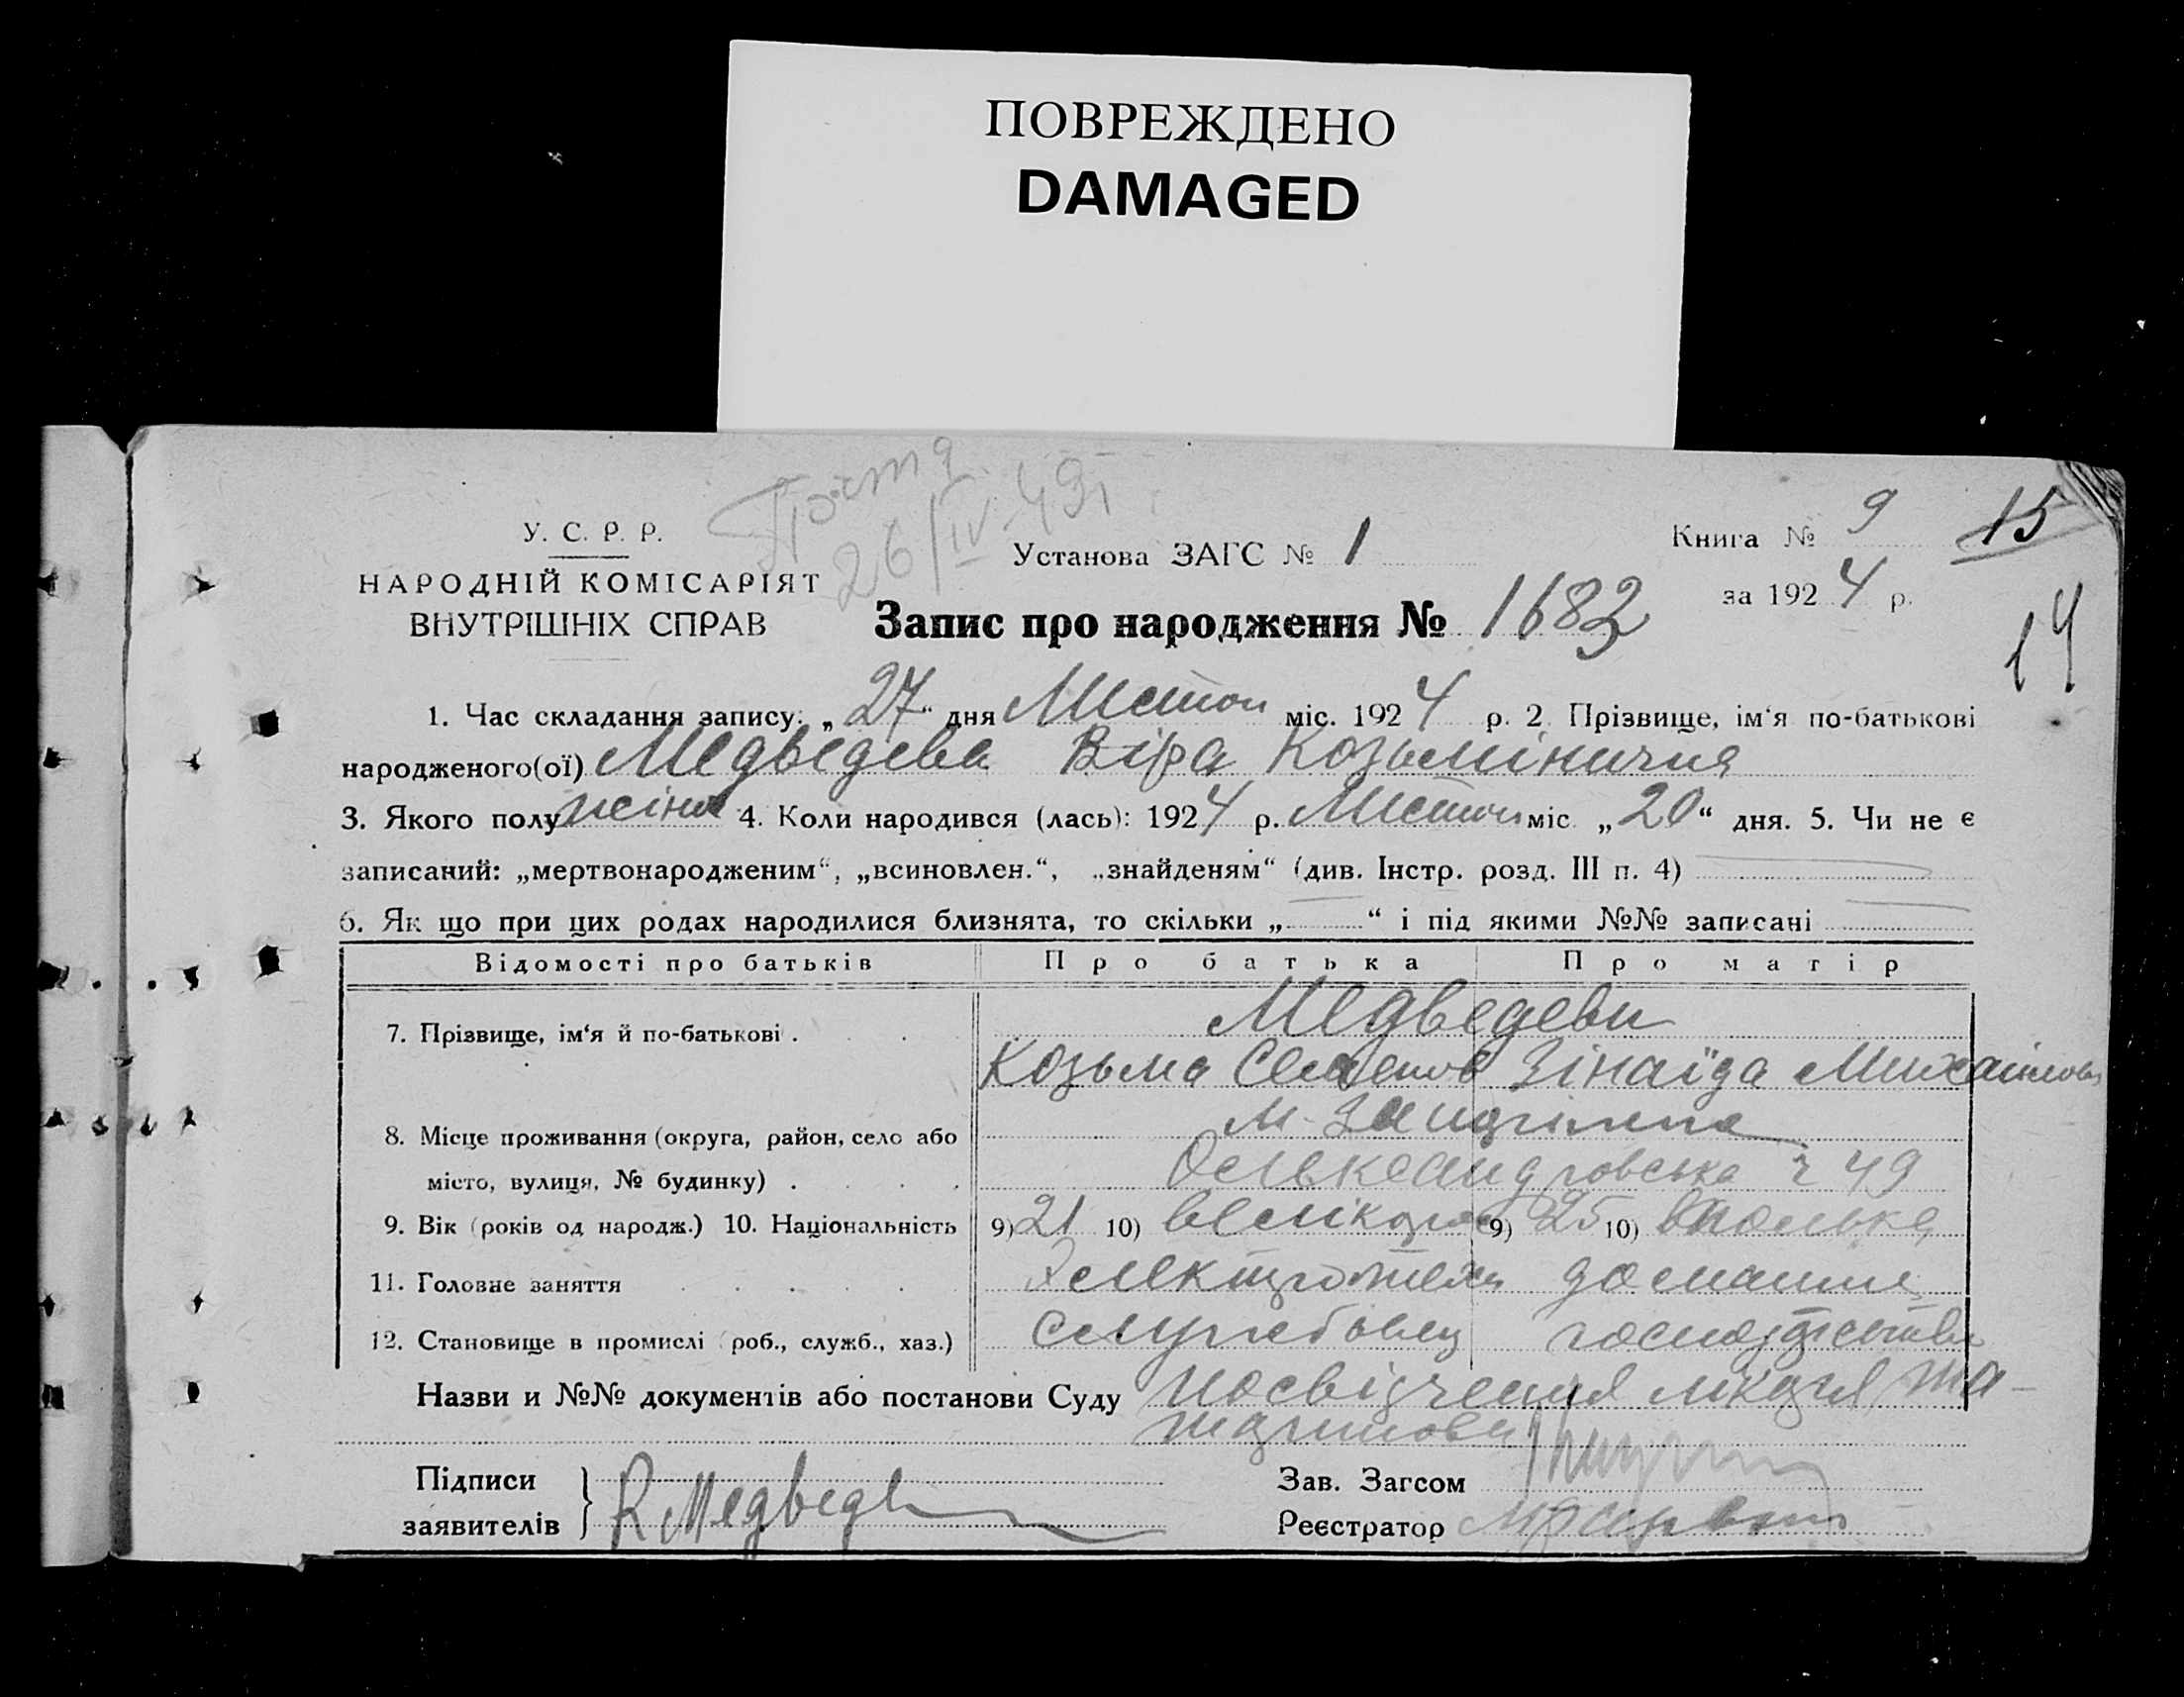 ПОВРЕЖДЕНО
DAMAGED
26/IV-49г
У. С. Р. Р.
НАРОДНІЙ КОМІСАРІЯТ
ВНУТРІШНІХ СПРАВ
Установа ЗАГС № 1
Книга № 9
15
за 1924 р.
14
Запис про народження № 1682
1. Час складання запису: „27“ дня Листоп міс. 1924 р. 2 Прізвище, ім‘я по-батькові
народженого(ої) Медведева Віра Козьмінична
3. Якого полу жіноч 4. Коли народився (лась): 1924 р. Листоп міс. „20“ дня. 5. Чи не є
записаний: „мертвонародженим“, „всиновлен.“, „знайденям“ (див. Інстр. розд. III п. 4)
6. Як що при цих родах народилися близнята, то скільки „ “ і під якими №№ записані
Відомості про батьків Про батька Про матір
7. Прізвище, ім‘я й по-батькові . Медведеви
Козьма Семенов Зінаїда Михайлов
8. Місце проживання (округа, район, село або
місто, вулиця, № будинку) . ч 49
9. Вік (років од народж.) 10. Національність 9) 21 10) 9) 25 10) полька
11. Головне заняття Електротехн домашнє
12. Становище в промислі (роб., служб., хаз.) службовец господарство
Назви и №№ документів або постанови Суду Посвідчення лікаря та
Підписи
заявителів К Медведев
Зав. Загсом
Реєстратор